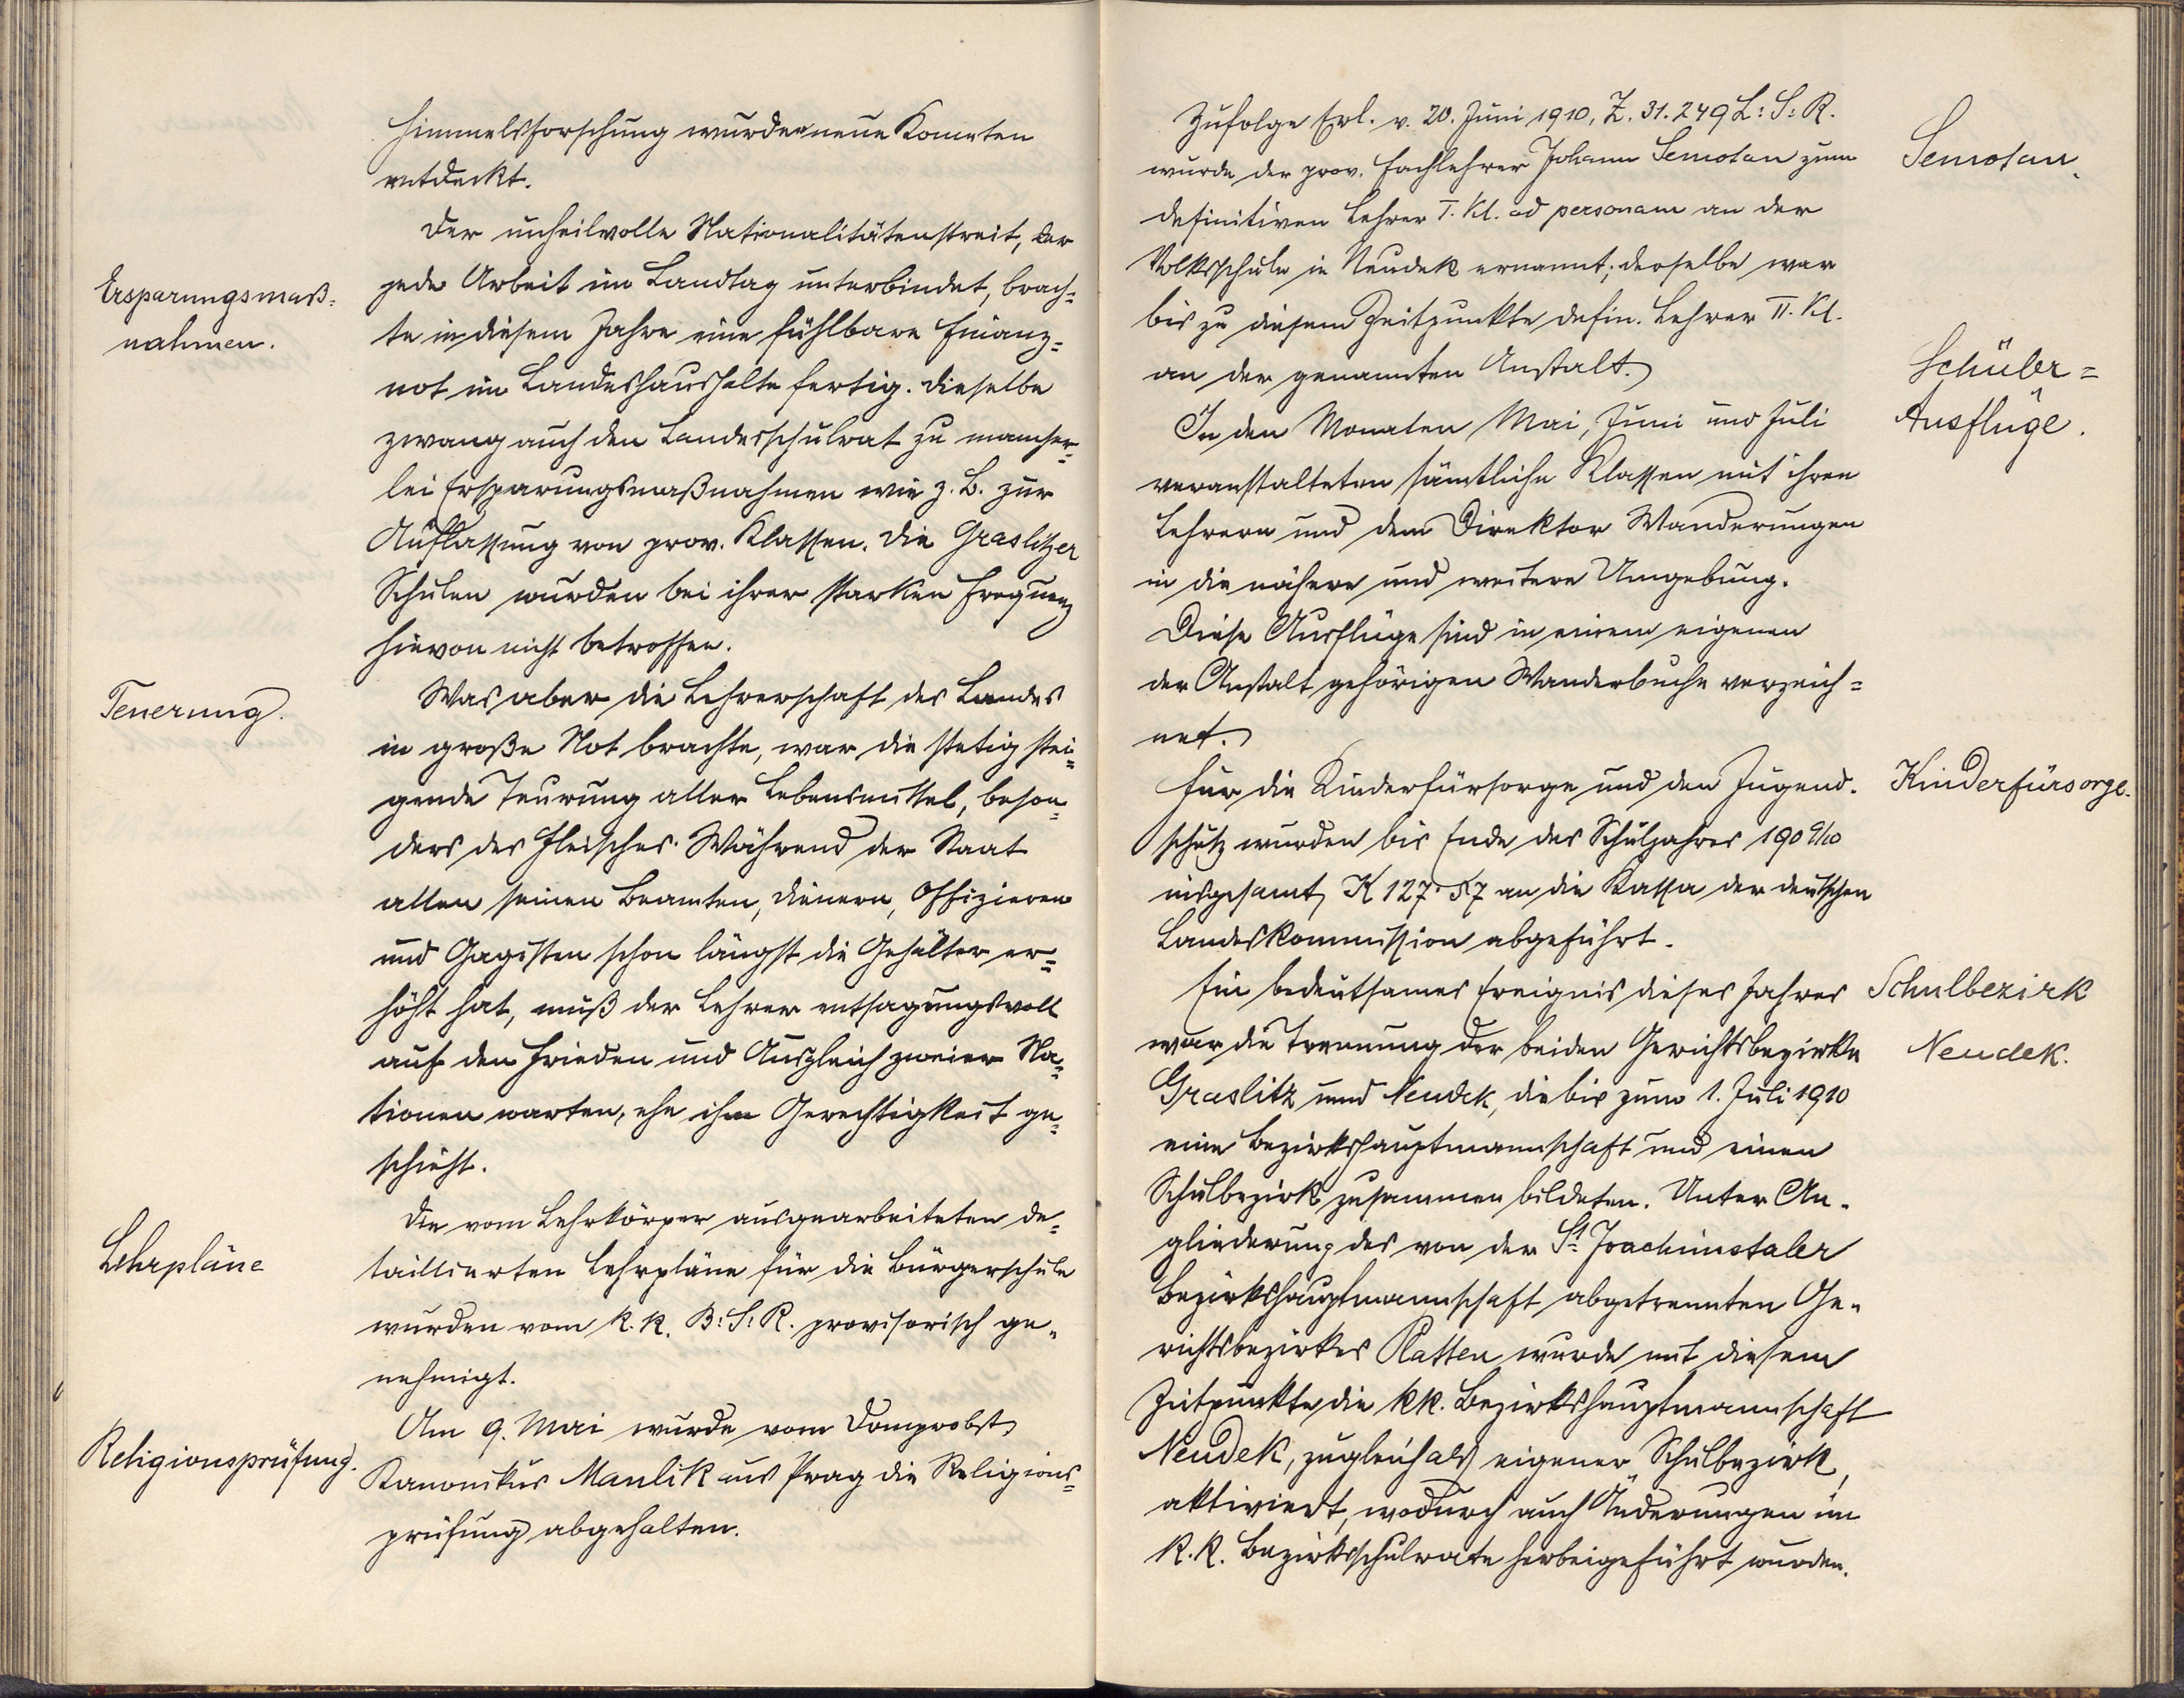 Himmelsforschung wurden neue Kometen
entdeckt.
Der unheilvolle Nationalitätenstreit, der
Ersparungsmaß=
nahmen.
jede Arbeit im Landtag unterbindet, brach=
te in diesem Jahre eine fühlbare Finanz=
not im Landeshaushalte fertig. Dieselbe
zwang auch den Landesschulrat zu mancher=
lei Ersparungsmaßnahmen wie z. B. zur
Auflassung von prov. Klassen. Die Graslitzer
Schulen wurden bei ihrer starken Frequenz
hievon nicht betroffen.
Teuerung.
Was aber die Lehrerschaft des Landes
in große Not brachte, war die stetig stei=
gende Teurung aller Lebensmittel, beson=
ders des Fleisches. Während der Staat
allen seinen Beamten, Dienern, Offizieren
und Gagisten schon längst die Gehälter er=
höht hat, muß der Lehrer entsagungsvoll
auf den Frieden und Ausgleich zweier Na=
tionen warten, ehe ihm Gerechtigkeit ge=
schieht.
Lehrpläne
Die vom Lehrkörper ausgearbeiteten de=
taillierten Lehrpläne für die Bürgerschule
wurden vom k. k. B: S: R. provisorisch ge=
nehmigt.
Religionsprüfung.
Am 9. Mai wurde vom Domprobst,
Kanonikus Maulik aus Prag die Religions=
prüfung abgehalten.
Zufolge Erl. v. 20. Juni 1910, Z. 31.249 L: S: R.
wurde der prov. Fachlehrer Johann Semotan zum
Semotan.
definitiven Lehrer I. Kl. ad personam an der
Volksschule in Neudek ernannt; derselbe war
bis zu diesem Zeitpunkte defin. Lehrer II. Kl.
an der genannten Anstalt.
Schüler=
Ausflüge.
In den Monaten Mai, Juni und Juli
veranstalteten sämtliche Klassen mit ihren
Lehrern und dem Direktor Wanderungen
in die nähere und weitere Umgebung.
Diese Ausflüge sind in einem eigenen
der Anstalt gehörigen Wanderbuche verzeich=
net.
Kinderfürsorge.
Für die Kinderfürsorge und den Jugend=
schutz wurden bis Ende des Schuljahres 1909/10
insgesamt K 127·57 an die Kassa der deutschen
Landeskommission abgeführt.
Schulbezirk
Neudek.
Ein bedeutsames Ereignis dieses Jahres
war die Trennung der beiden Gerichtsbezirke
Graslitz und Neudek, die bis zum 1. Juli 1910
eine Bezirkshauptmannschaft und einen
Schulbezirk zusammen bildeten. Unter An=
gliederung des von der St. Joachimstaler
Bezirkshauptmannschaft abgetrennten Ge=
richtsbezirkes Platten wurde mit diesem
Zeitpunkte die kk. Bezirkshauptmannschaft
Neudek, zugleich als eigener Schulbezirk,
aktiviert, wodurch auch Änderungen im
k. k. Bezirksschulrate herbeigeführt wurden.